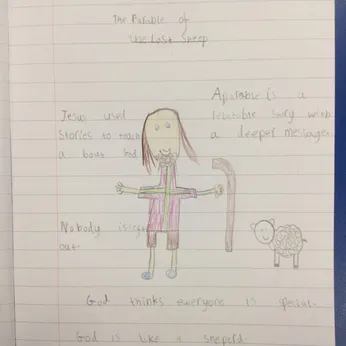 The Parable of
the Lost Sheep
Jesus used
stories to teach
a bout God
A parable is a
relatable story with
a deeper message.
Nobody is left
out.
God thinks everyone is special.
God is like a sheperd